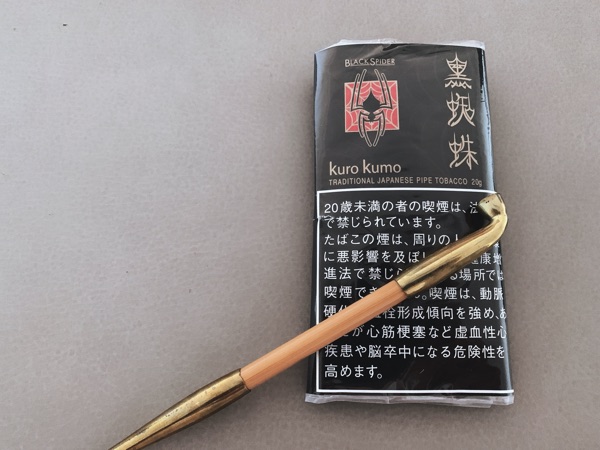 BLACK SPIDER
黒蜘蛛
kuro kumo
TRADITIONAL JAPANESE PIPE TOBACCO 20g
20歳未満の者の喫煙は、法
で禁じられています。
たばこの煙は、周りの人
に悪影響を及ぼし 健康増
進法で禁じら る場所で
喫煙でき 。喫煙は、動脈
硬化 栓形成傾向を強め、あ
が心筋梗塞など虚血性心
疾患や脳卒中になる危険性を
高めます。